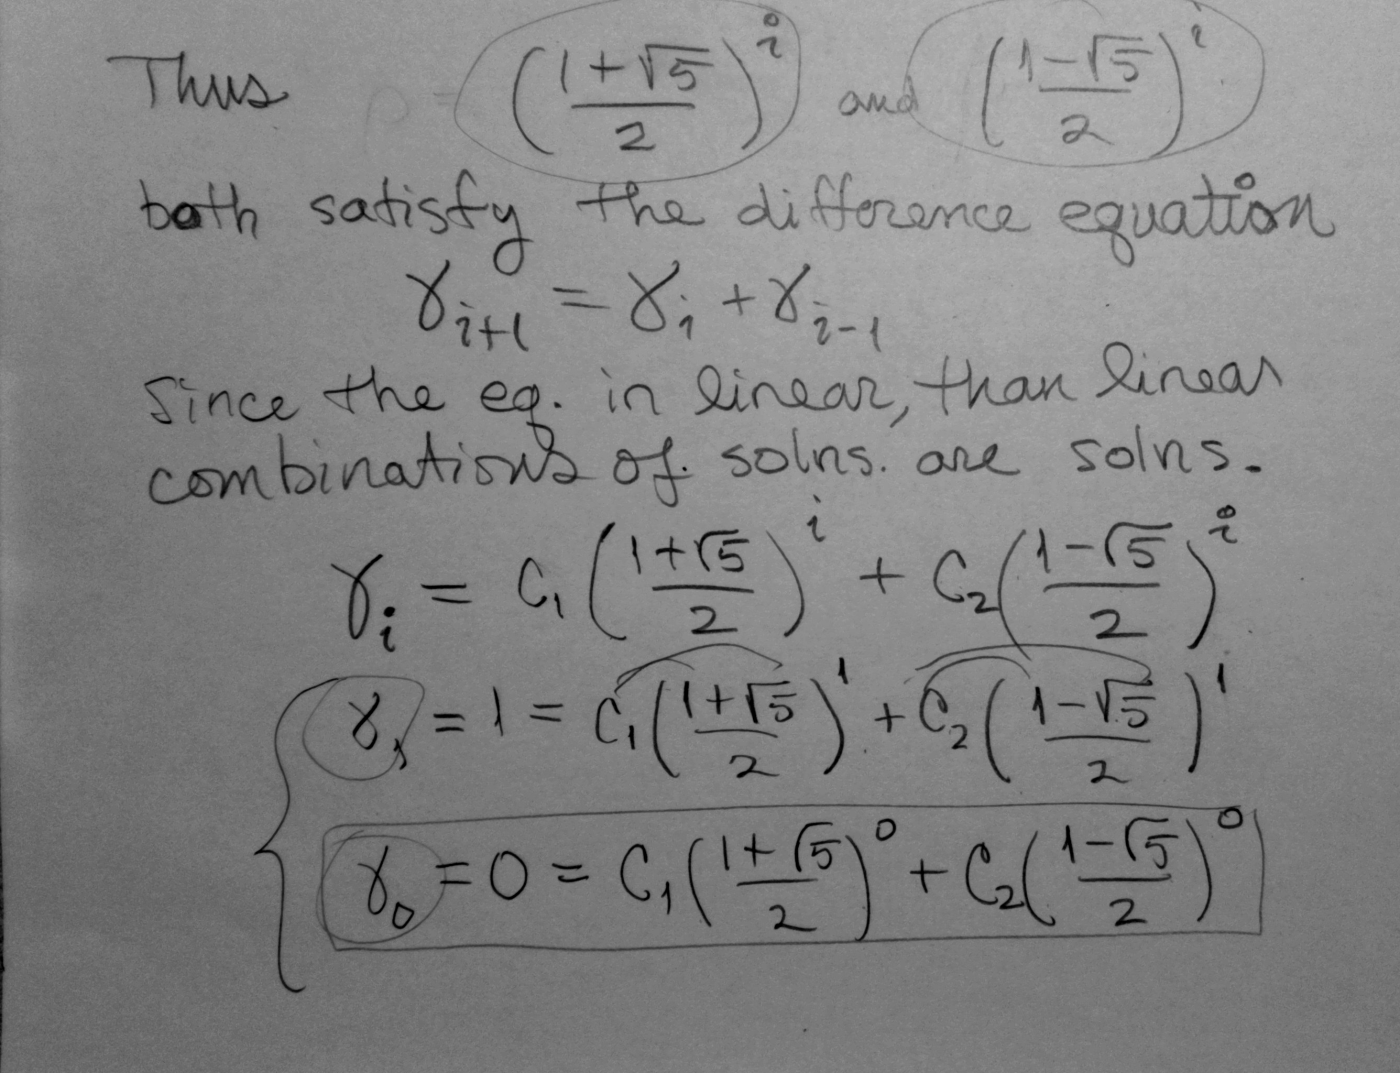 Thus ((1+√5)/2)^i and ((1-√5)/2)^i
both satisfy the difference equation
γ_{i+1} = γ_i + γ_{i-1}
Since the eq. in linear, than linear
combinations of. solns. are solns.
γ_i = C_1((1+√5)/2)^i + C_2((1-√5)/2)^i
γ_1 = 1 = C_1((1+√5)/2)^1 + C_2((1-√5)/2)^1
γ_0 = 0 = C_1((1+√5)/2)^0 + C_2((1-√5)/2)^0